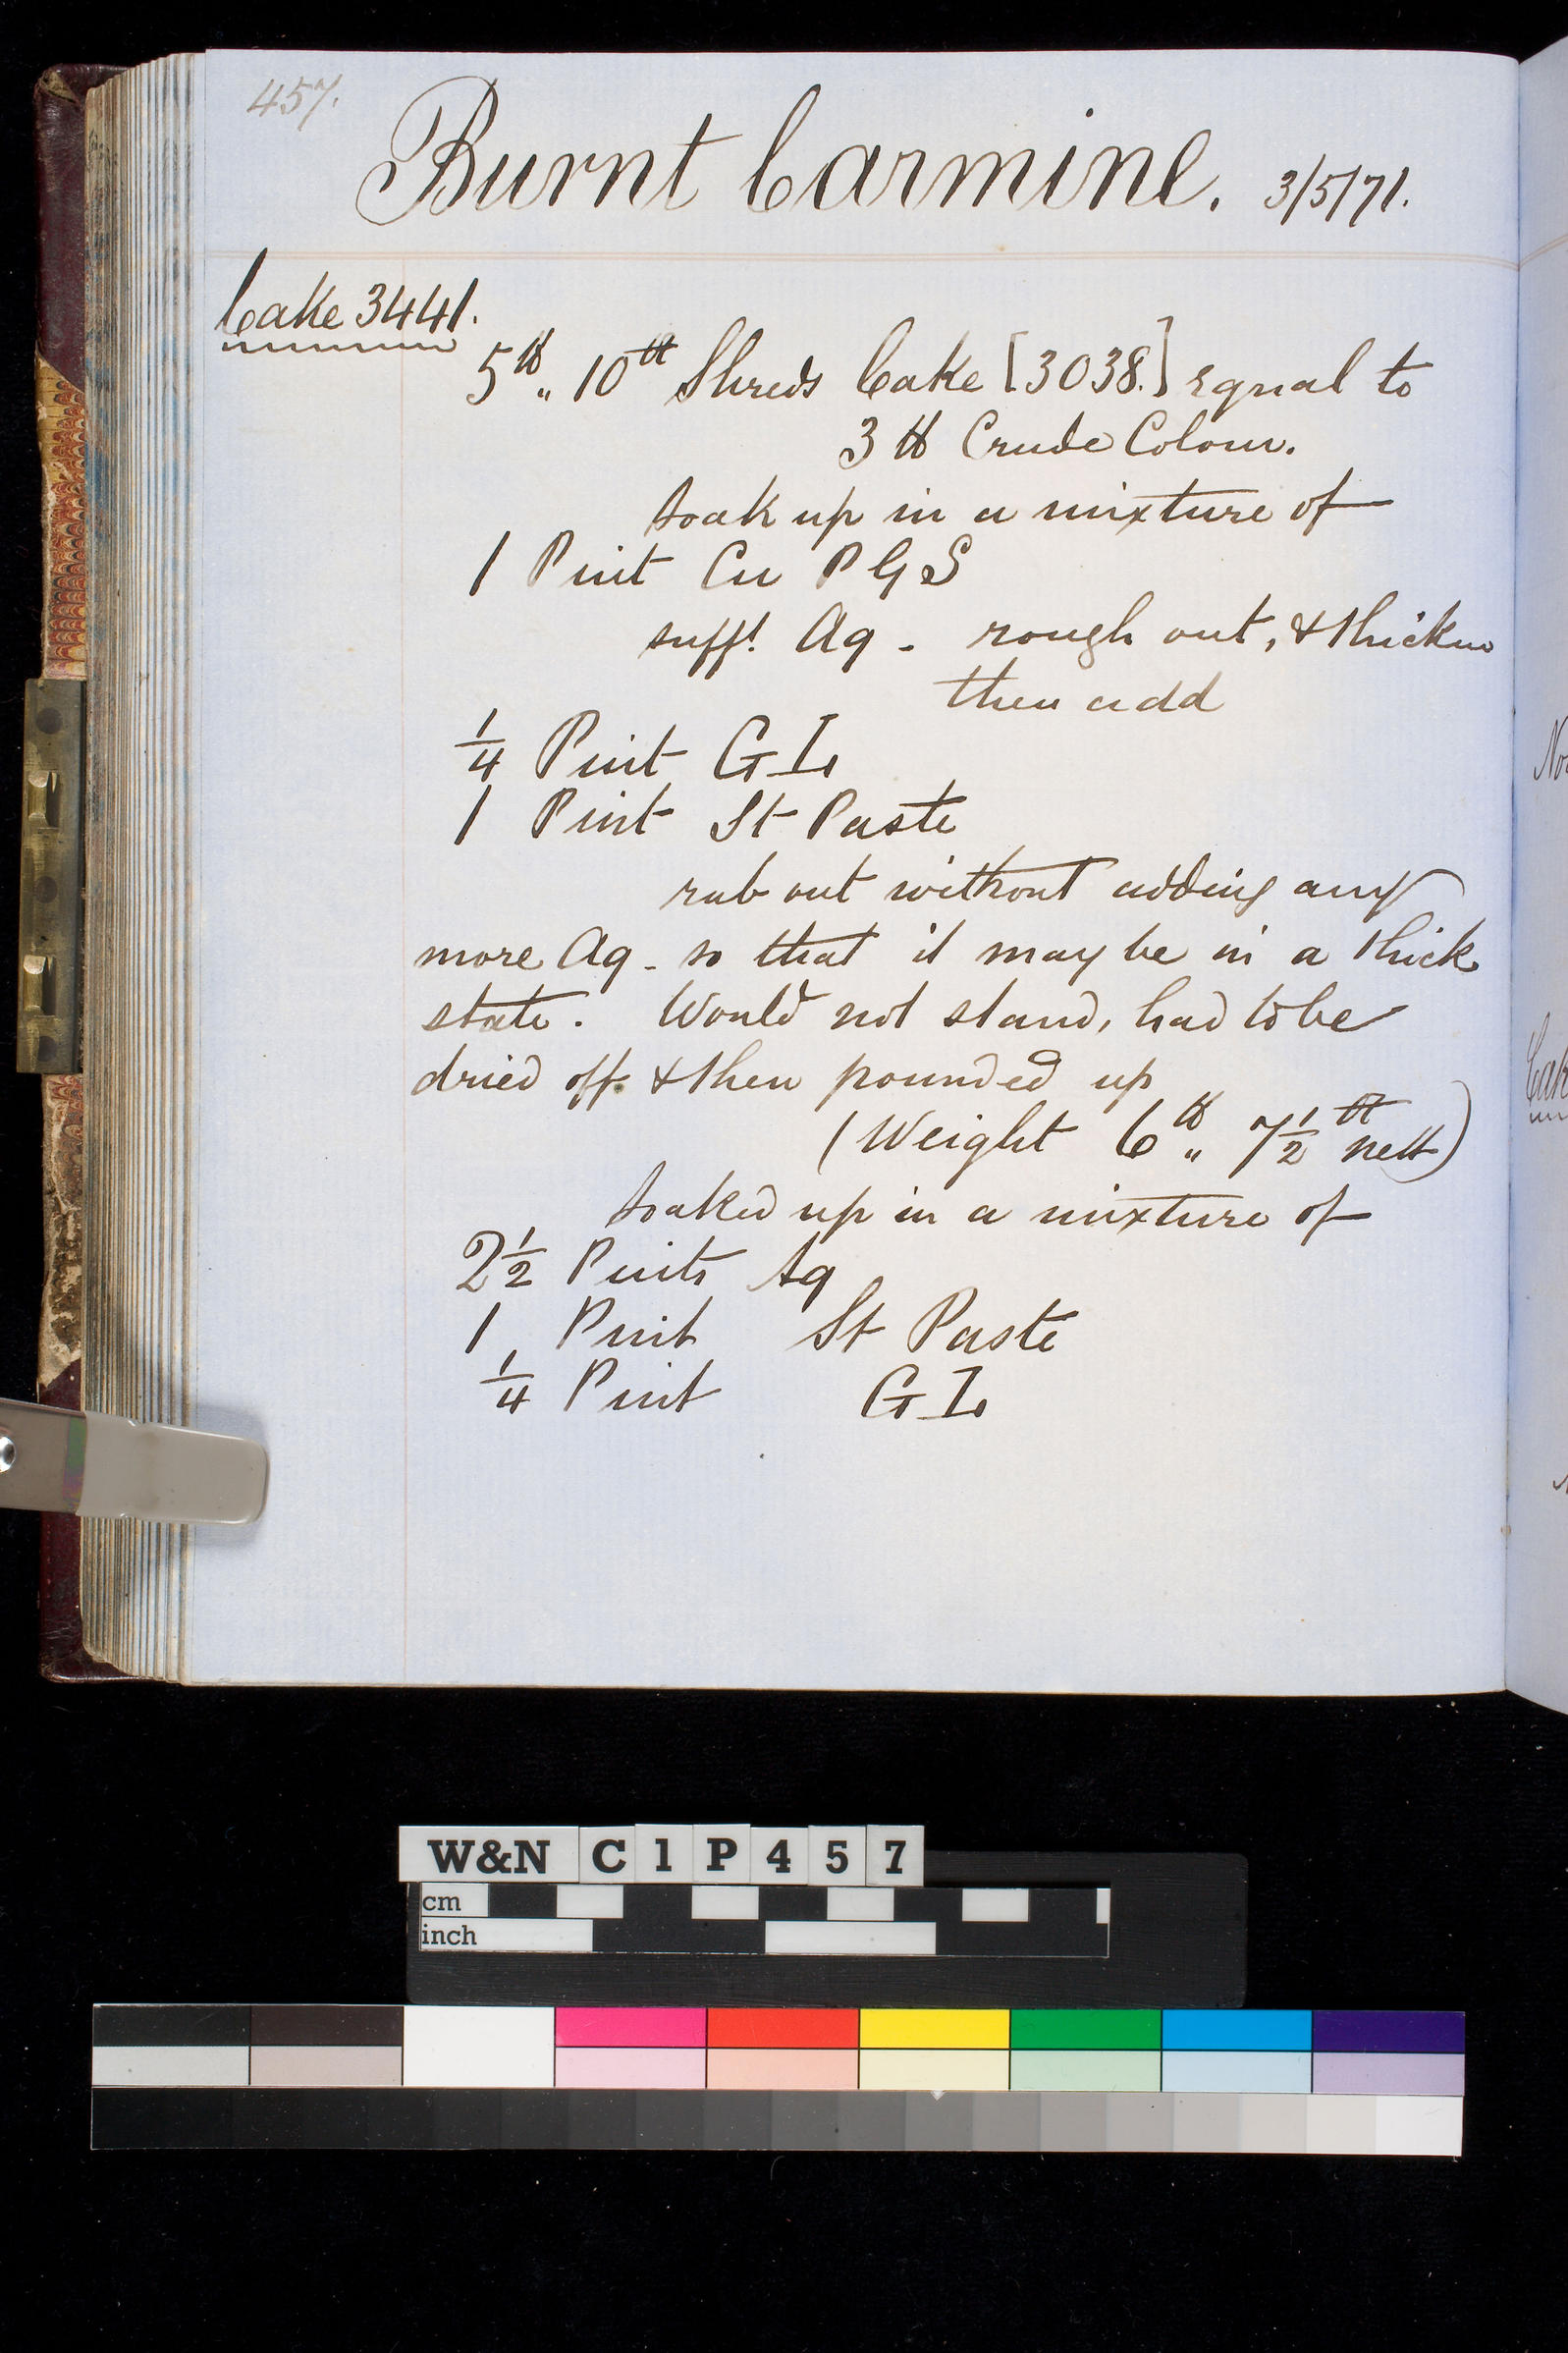 457.
Burnt Carmine. 3/5/71.
Cake 3441.
5 lb „ 10 Shreds Cake [3038.] equal to
3 lb Crude Colour.
soak up in a mixture of
1 Pint Cu P G S
suff! Aq - rough out, & thicken
then add
1/4 Pint G L
1 Pint St Paste
rub out without adding any
more Aq - so that it may be in a thick
state. Would not stand, had to be
dried off & then pounded up
(Weight 6 lb „ 7 1/2 nett)
Soaked up in a mixture of
2 1/2 Pints Aq
1 Pint St Paste
1/4 Pint G L
No
Cak
W&N C 1 P 4 5 7
cm
inch